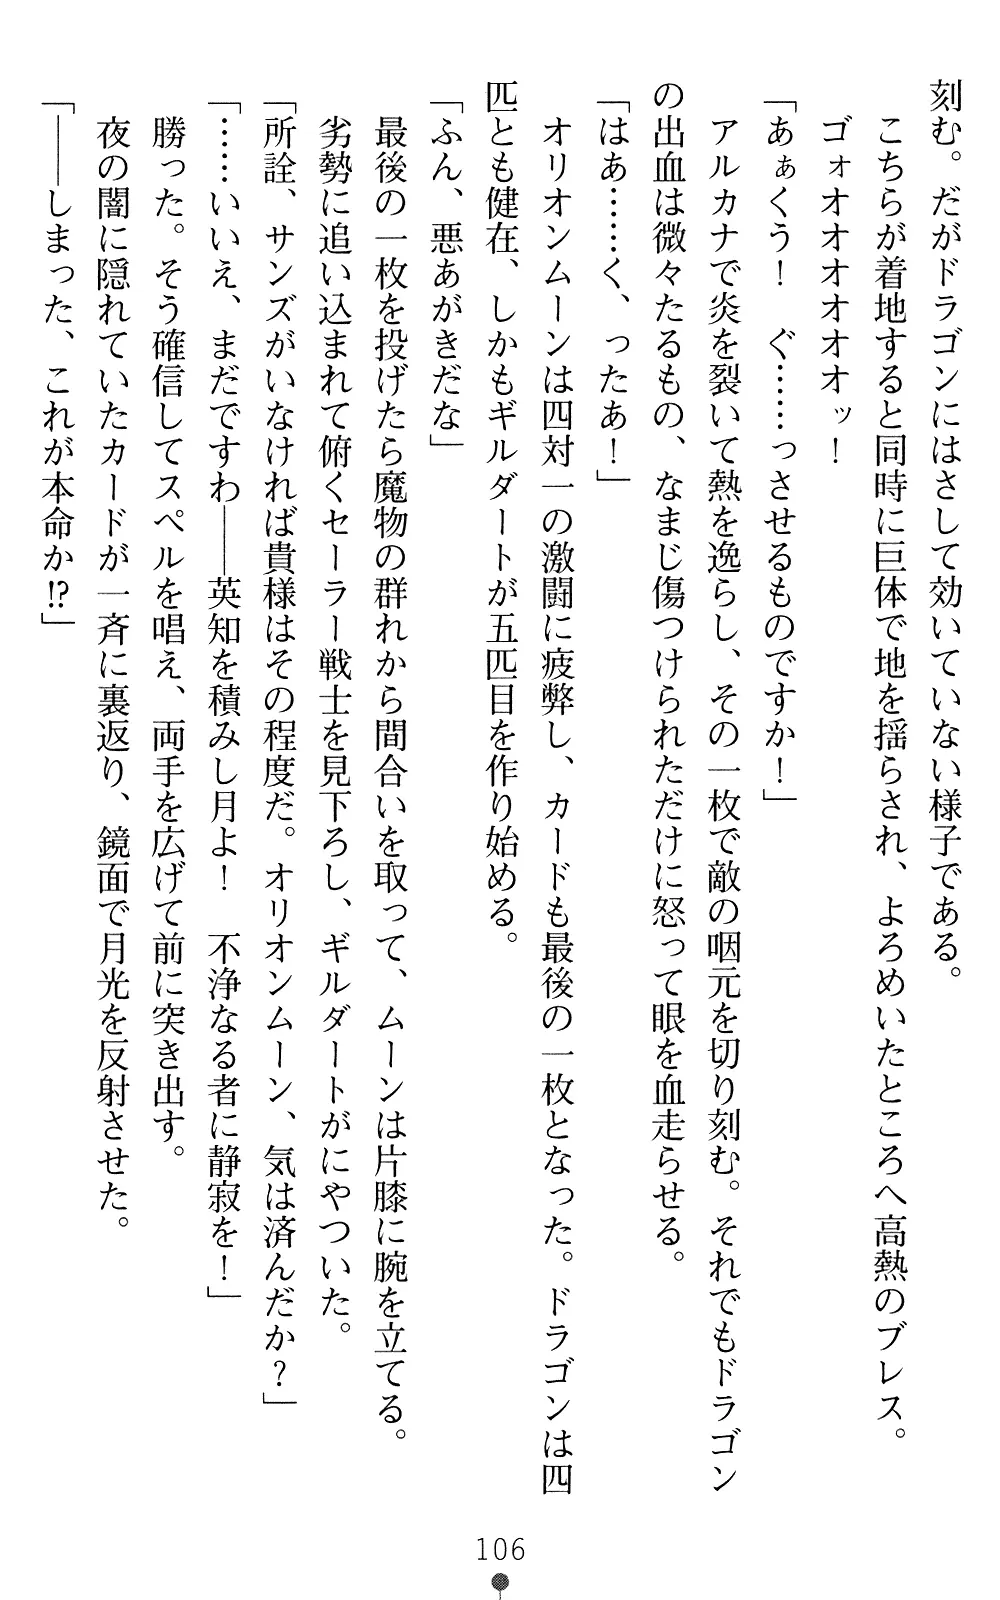 刻む。だがドラゴンにはさして効いていない様子である。
　こちらが着地すると同時に巨体で地を揺らされ、よろめいたところへ高熱のブレス。
　ゴォオオオオオオッ！
「あぁくう！　ぐ……っさせるものですか！」
　アルカナで炎を裂いて熱を逸らし、その一枚で敵の咽元を切り刻む。それでもドラゴン
の出血は微々たるもの、なまじ傷つけられただけに怒って眼を血走らせる。
「はあ……く、ったあ！」
　オリオンムーンは四対一の激闘に疲弊し、カードも最後の一枚となった。ドラゴンは四
匹とも健在、しかもギルダートが五匹目を作り始める。
「ふん、悪あがきだな」
　最後の一枚を投げたら魔物の群れから間合いを取って、ムーンは片膝に腕を立てる。
　劣勢に追い込まれて俯くセーラー戦士を見下ろし、ギルダートがにやついた。
「所詮、サンズがいなければ貴様はその程度だ。オリオンムーン、気は済んだか？」
「……いいえ、まだですわ――英知を積みし月よ！　不浄なる者に静寂を！」
　勝った。そう確信してスペルを唱え、両手を広げて前に突き出す。
　夜の闇に隠れていたカードが一斉に裏返り、鏡面で月光を反射させた。
「――しまった、これが本命か!?」
106